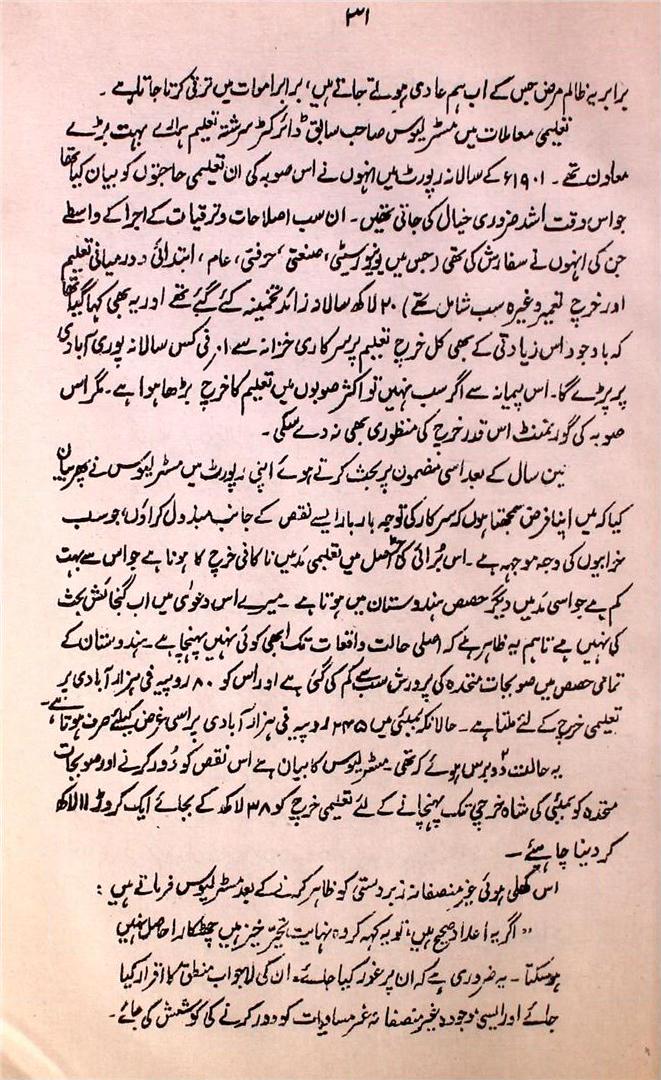 ۳۱
برابر یہ ظالم مرض جس کے اب ہم عادی ہوئے جاتے ہیں، برابر اموات میں ترقی کرتا جاتا ہے۔
تعلیمی معاملات میں مسٹر لیوس صاحب سابق ڈائرکٹر سررشتہ تعلیم ہمارے بہت بڑے
معاون تھے۔ ۱۹۰۱ء کے سالانہ رپورٹ میں انہوں نے اس صوبہ کی ان تعلیمی حاجتوں کو بیان کیا تھا
جو اس وقت اشد ضروری خیال کی جاتی تھیں۔ ان سب اصلاحات و ترقیات کے اجرا کے واسطے
جن کی انہوں نے سفارش کی تھی (جس میں یونیورسٹی، صنعتی، حرفتی، عام، ابتدائی و درمیانی تعلیم
اور خرچ تعمیر وغیرہ سب شامل تھے) ۲۰ لاکھ سالانہ زائد تخمینہ کئے گئے تھے اور یہ بھی کہا گیا تھا
کہ باوجود اس زیادتی کے بھی کل خرچ تعلیم پر سرکاری خزانہ سے ۱ر فی کس سالانہ پوری آبادی
پر پڑے گا۔ اس پیمانہ سے اگر سب نہیں تو اکثر صوبوں میں تعلیم کا خرچ بڑھا ہوا ہے۔ مگر اس
صوبہ کی گورنمنٹ اس قدر خرچ کی منظوری بھی نہ دے سکی۔
تین سال کے بعد اسی مضمون پر بحث کرتے ہوئے اپنی رپورٹ میں مسٹر لیوس نے پھر بیان
کیا کہ میں اپنا فرض سمجھتا ہوں کہ سرکار کی توجہ بار بار ایسے نقص کے جانب مبذول کراؤں جو سب
خرابیوں کی وجہ موجہہ ہے۔ اس بُرائی کی اصل میں تعلیمی مد میں ناکافی خرچ کا ہونا ہے جو اس سے بہت
کم ہے جو اسی مد میں دیگر حصص ہندوستان میں ہوتا ہے۔ میرے اس دعویٰ میں اب گنجائش بحث
کی نہیں ہے تاہم یہ ظاہر ہے کہ اصلی حالت واقعات تک ابھی کوئی نہیں پہنچا ہے۔ ہندوستان کے
تمامی حصص میں صوبجات متحدہ کی پرورش سب سے کم کی گئی ہے اور اس کو ۸۰ روپیہ فی ہزار آبادی پر
تعلیمی خرچ کے لئے ملتا ہے۔ حالانکہ بمبئی میں ۲۴۵ روپیہ فی ہزار آبادی پر اسی غرض کیلئے صرف ہوتا ہے۔
یہ حالت دو برس ہوئے کہ تھی۔ مسٹر لیوس کا بیان ہے اس نقص کو دُور کرنے اور صوبجات
متحدہ کو بمبئی کی شاہ خرچی تک پہنچانے کے لئے تعلیمی خرچ کو ۳۸ لاکھ کے بجائے ایک کروڑ ۱۱ لاکھ
کر دینا چاہئے۔
اس کھلی ہوئی غیر منصفانہ زبردستی کو ظاہر کرنے کے بعد مسٹر لیوس فرماتے ہیں:
"اگر یہ اعداد صحیح ہیں، تو یہ کہہ کر وہ نہایت تحیر خیز ہیں چھٹکارا حاصل نہیں
ہو سکتا۔ یہ ضروری ہے کہ ان پر غور کیا جائے۔ ان کی لاجواب منطق کا اقرار کیا
جائے اور ایسی موجودہ غیر منصفانہ غیر مساویات کو دور کرنے کی کوشش کی جائے۔